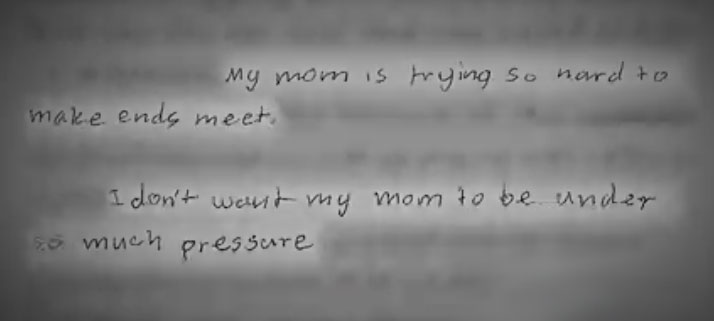 My mom is trying so hard to
make ends meet.
I don't want my mom to be under
so much pressure